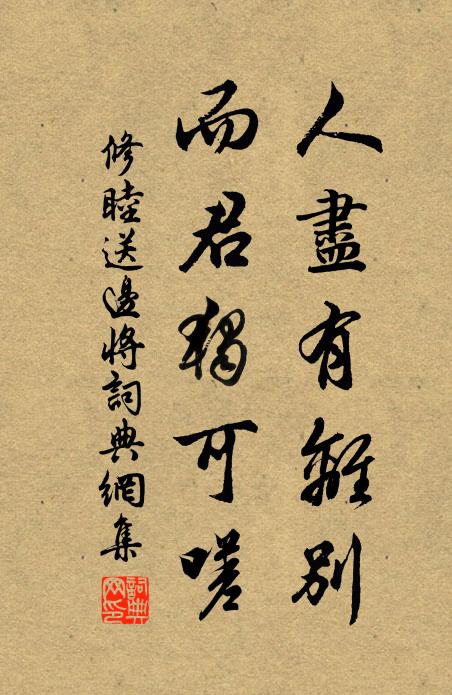 人盡有離別
而君獨可嗟
修睦送邊將詞典網集
詞典网印